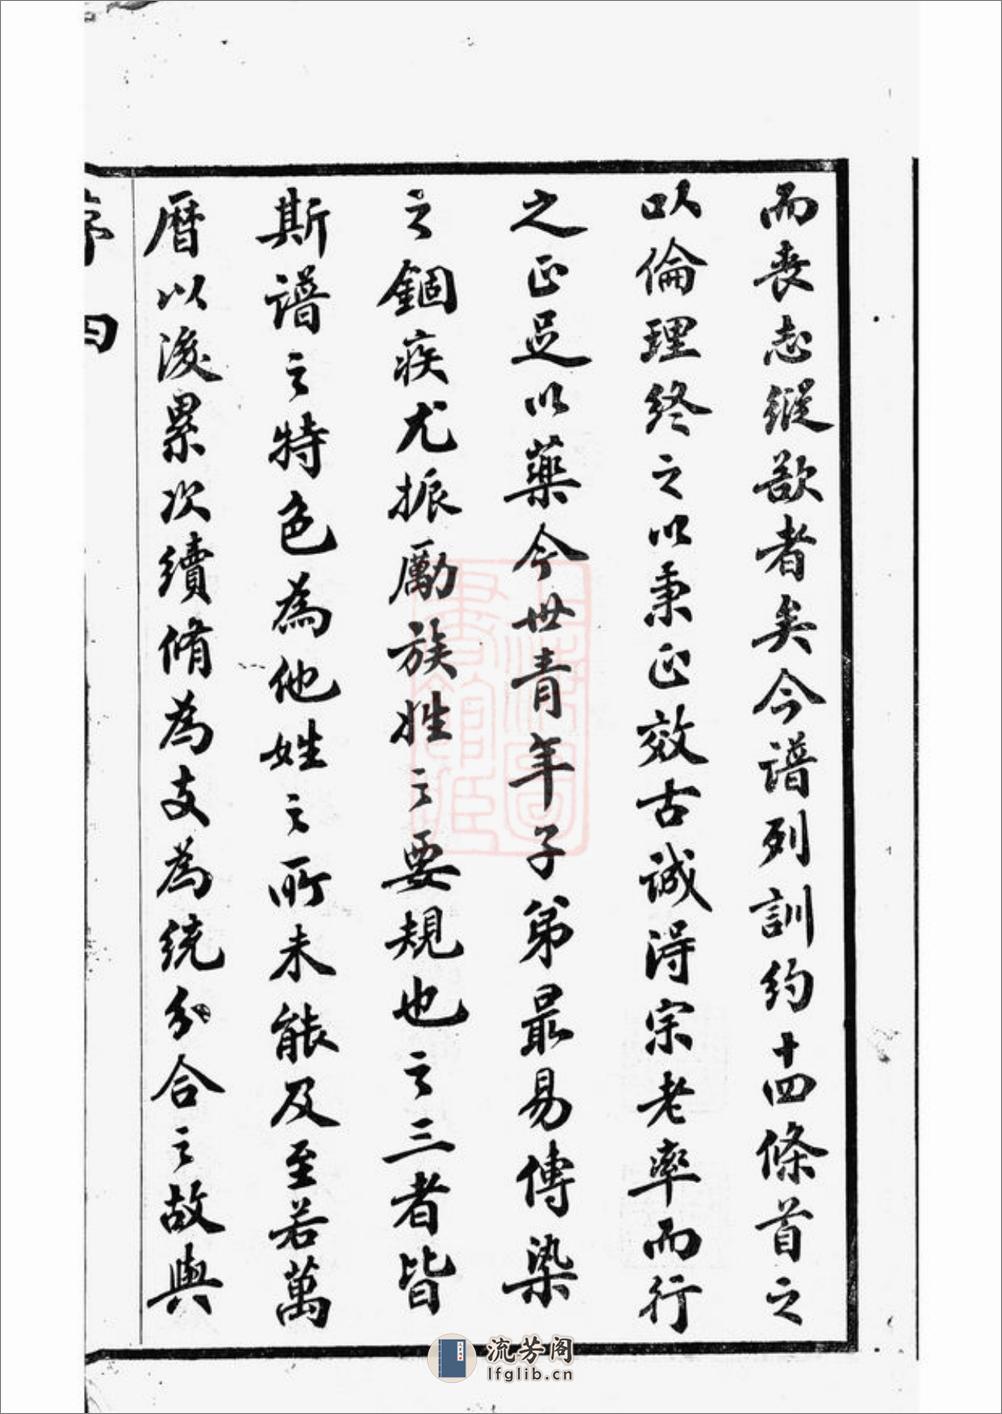 而喪志縱欲者矣今譜列訓約十四條首之
以倫理終之以秉正效古誠得宗老率而行
之正足以藥今世青年子弟最易傳染
之錮疾尤振勵族姓之要規也之三者皆
斯譜之特色為他姓之所未能及至若萬
曆以後累次續脩為支為統分合之故與
序 四
上海圖書館藏
流芳阁
lfglib.cn